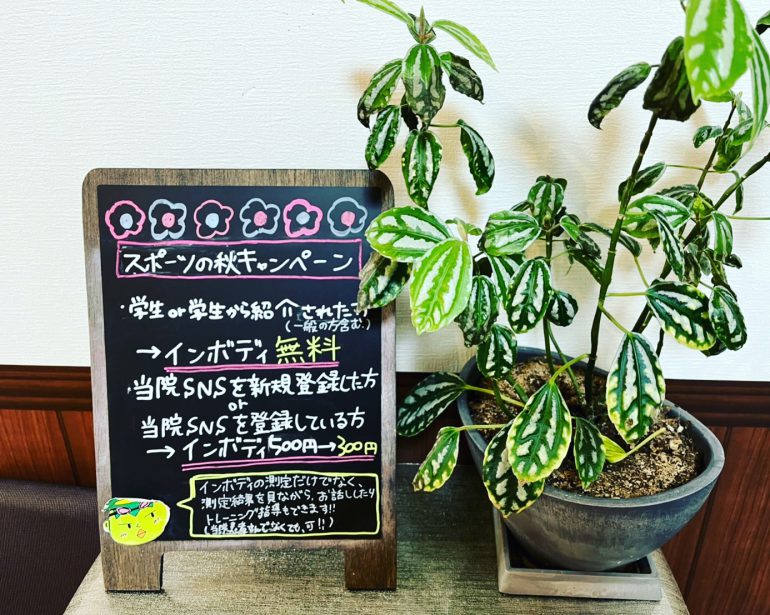 スポーツの秋キャンペーン
・学生or学生から紹介された方
(一般の方含む)
→インボディ無料
・当院SNSを新規登録した方
or
当院SNSを登録している方
→インボディ500円→300円
インボディの測定だけでなく、
測定結果を見ながら、お話したり
トレーニング指導もできます!!